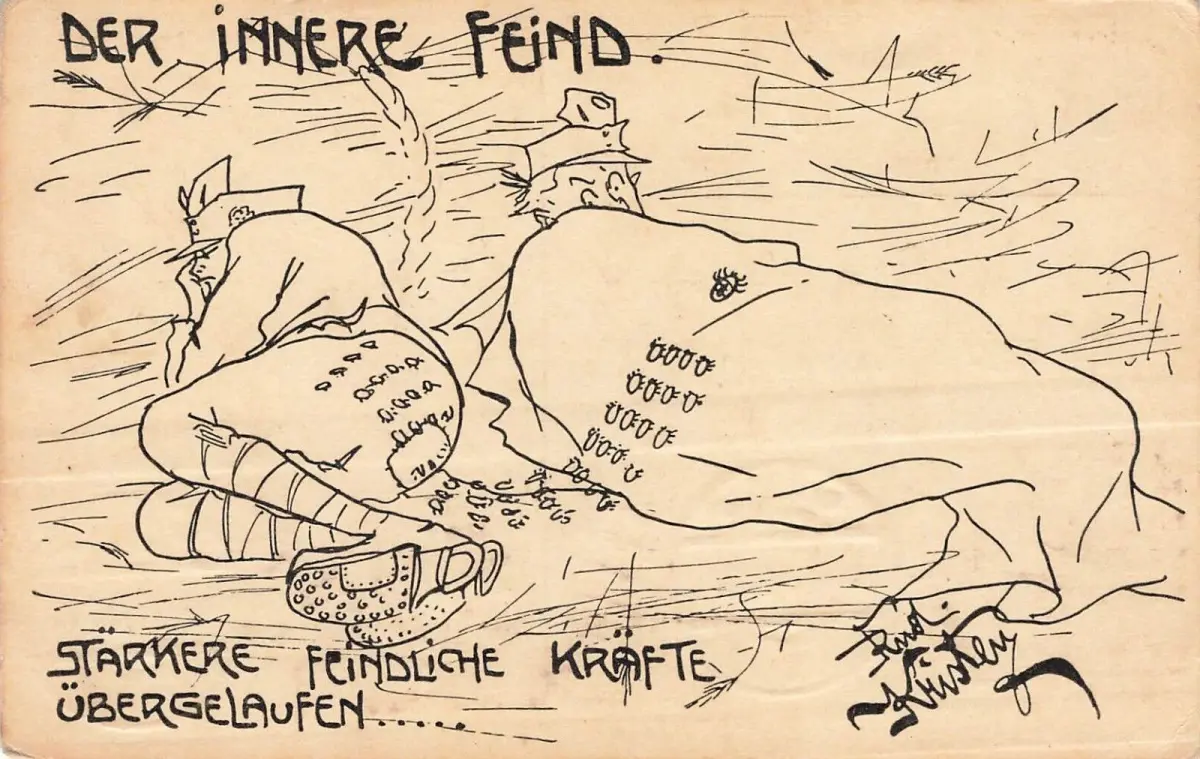 DER INNERE FEIND.
STÄRKERE FEINDLICHE KRÄFTE
ÜBERGELAUFEN.....
Rud.